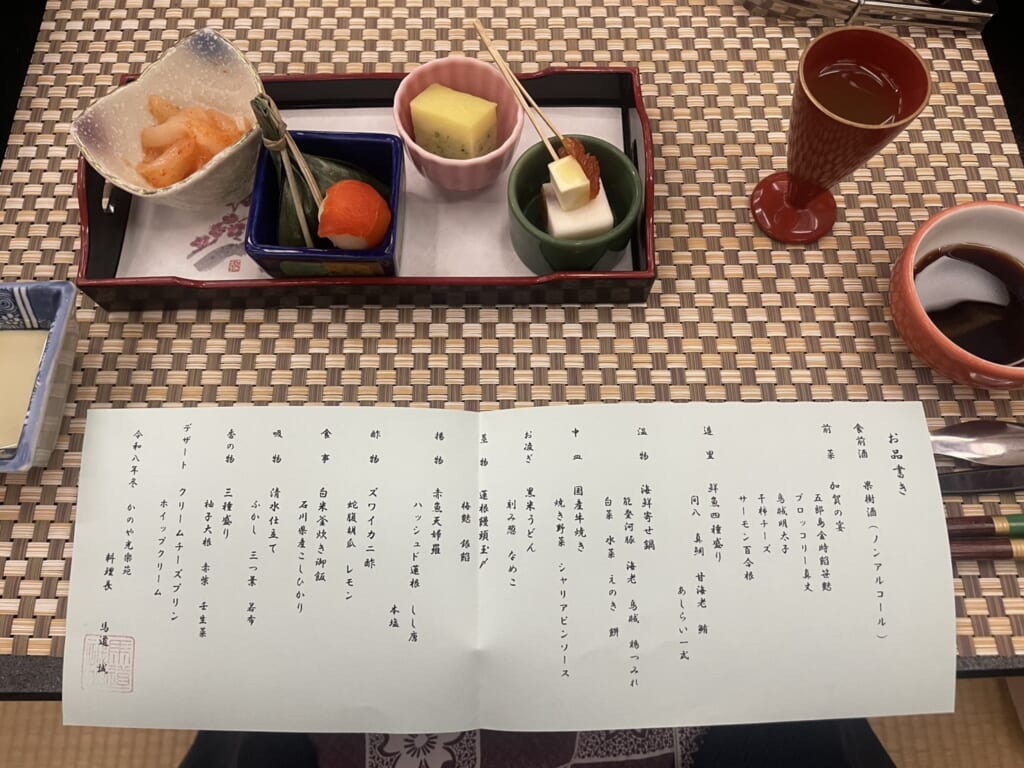 お品書き
食前酒 果樹酒（ノンアルコール）
前菜 加賀の宴
五郎島金時餡笹麩
ブロッコリー真丈
烏賊明太子
干柿チーズ
サーモン百合根
造里 鮮魚四種盛り
間八 真鯛 甘海老 鮪
あしらい一式
温物 海鮮寄せ鍋
能登河豚 海老 烏賊 鶏つみれ
白菜 水菜 えのき 餅
中皿 国産牛焼き
焼き野菜 シャリアピンソース
お凌ぎ 黒米うどん
刻み葱 なめこ
蓋物 蓮根饅頭玉〆
梅麩 銀餡
揚物 赤魚天婦羅
ハッシュド蓮根 しし唐
本塩
酢物 ズワイカニ酢
蛇腹胡瓜 レモン
食事 白米釜炊き御飯
石川県産こしひかり
吸物 清水仕立て
ふかし 三つ葉 若布
香の物 三種盛り
柚子大根 赤柴 壬生菜
デザート クリームチーズプリン
ホイップクリーム
令和八年冬 かのや光樂苑
料理長 馬道 誠